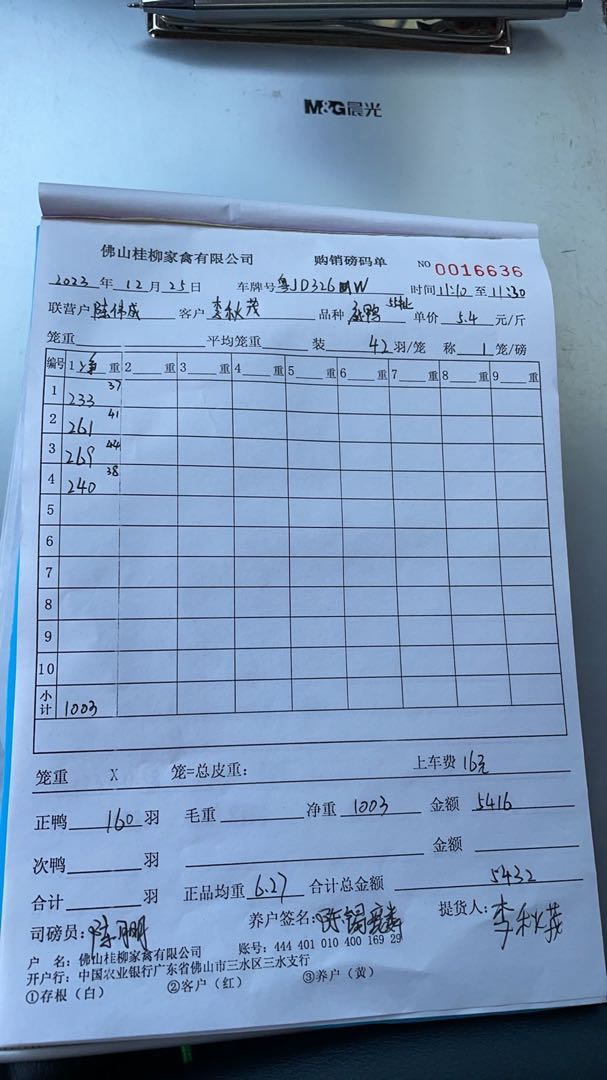 M&G晨光
佛山桂柳家禽有限公司 购销磅码单 NO 0016636
2023年 12月 25日 车牌号 粤JD326 W 时间 11:10 至 11:30
联营户 陈伟成 客户 李秋茂 品种 鸭 单价 5.4 元/斤
笼重 平均笼重 装 42 羽/笼 称 1 笼/磅
编号 1 净 重 2 重 3 重 4 重 5 重 6 重 7 重 8 重 9 重
1 233 37
2 261 41
3 269 44
4 240 38
5
6
7
8
9
10
小计 1003
笼重 X 笼=总皮重: 上车费 16元
正鸭 160 羽 毛重 净重 1003 金额 5416
次鸭 羽 金额
合计 羽 正品均重 6.27 合计总金额 5432
司磅员: 陈鹏 养户签名: 陈锡 提货人: 李秋茂
户 名: 佛山桂柳家禽有限公司 账号: 444 401 010 400 169 29
开户行: 中国农业银行广东省佛山市三水区三水支行
①存根(白) ②客户(红) ③养户(黄)